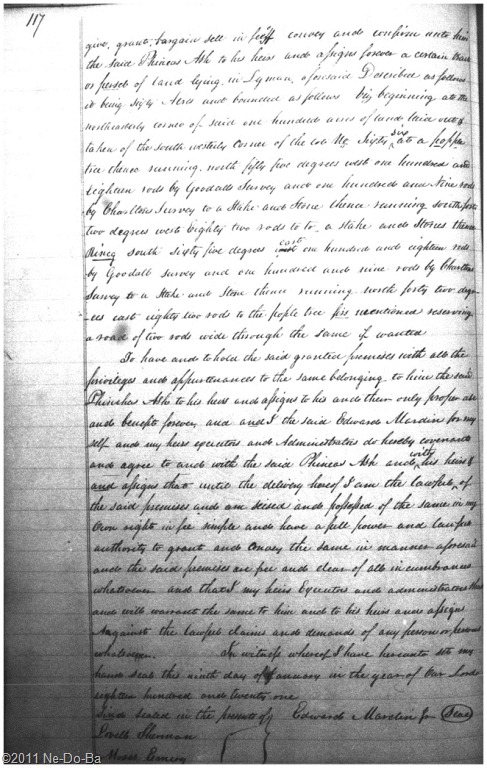 117
give, grant, bargain sell in feoff convey and confirm unto him
the said Phineas Ash to his heirs and assigns forever a certain tract
or parsel of land lying in Lyman, aforesaid Described as follows
it being sixty Acres and bounded as follows Viz beginning at the
northeasterly corner of said one hundred acres of land laid out &
taken of the south westerly corner of the lot No Sixty six at a popple
tree thence running north fifty five degrees west one hundred and
Eighteen rods by Goodalls Survey and one hundred and Nine rods
by Charltons Survey to a Stake and Stone thence running south forty
two degrees west Eighty two rods to to a stake and Stones thence
south sixty five degrees east one hundred and eighteen rods
by Goodall survey and one hundred and nine rods by Charltons
Survey to a Stake and Stone thence running north forty two degr-
ees east eighty two rods to the people tree firs mentioned reserving
a road of two rods wide through the same if wanted
To have and to hold the said granted premises with all the
privileges and appurtenances to the same belonging to him the said
Phinehas Ash to his heirs and assigns to his and their only proper use
and benefit forever, and and I the said Edward Mardin for my
self and my heirs executors and Administrators do hereby covenant
and agree to and with the said Phineas Ash and with his heirs &
and assigns that until the delivery hereof I am the lawful, of
the said premises and am seised and possessed of the same in my
Own right in fee simple and have a full power and lawful
authority to grant and convey the same in manner aforesaid
and the said premises are free and clear of all in cumbrances
whatsoever and that I my heirs Executors and administrators shall
and will warrant the same to him and to his heirs and assigns
Against the lawful claims and demands of any person or persons
whatsoever. In witness whereof I have hereunto set my
hand seal this ninth day of January in the year of Our Lord
eighteen hundred and twenty one
Sind sealed in the presents of Edward Mardin Jr Seal
Lovell Sherman
Moses Emery
©2011 Ne-Do-Ba